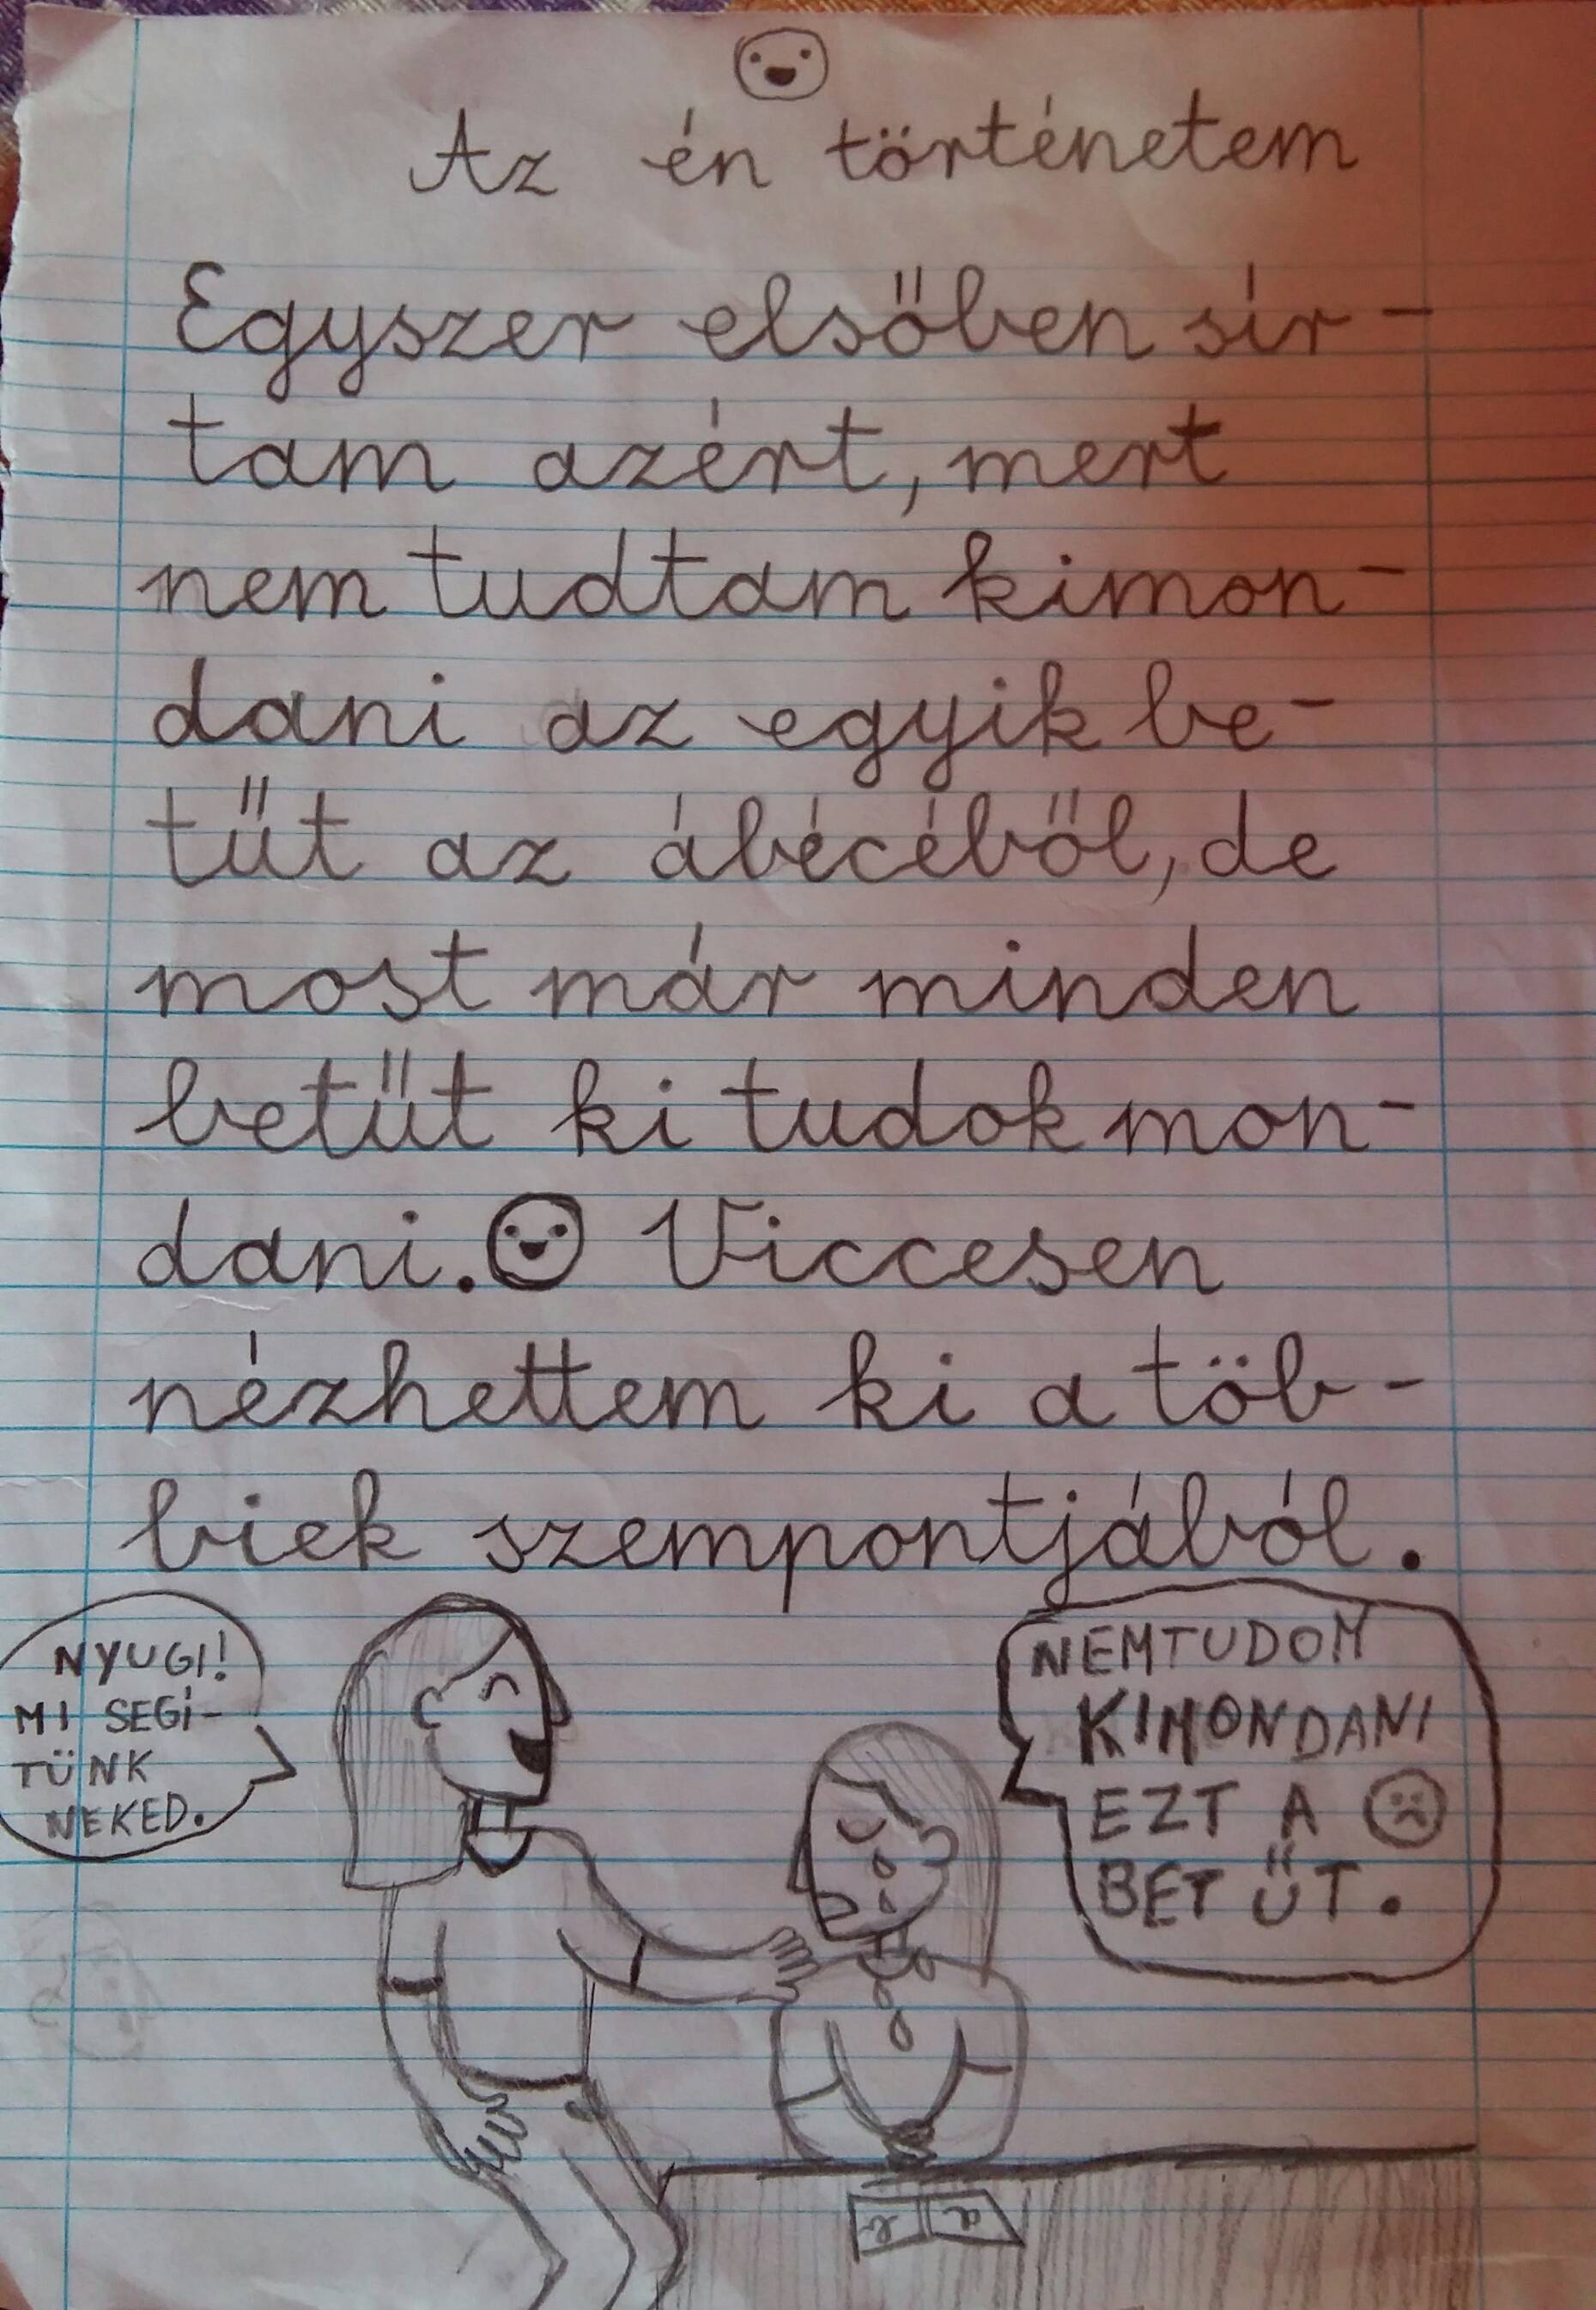 Az én történetem
Egyszer elsőben sír-
tam azért, mert
nem tudtam kimon-
dani az egyik be-
tűt az ábécéből, de
most már minden
betűt ki tudok mon-
dani. Viccesen
nézhettem ki a töb-
biek szempontjából.
NYUGI!
MI SEGÍ-
TÜNK
NEKED.
NEMTUDOM
KIMONDANI
EZT A
BETŰT.